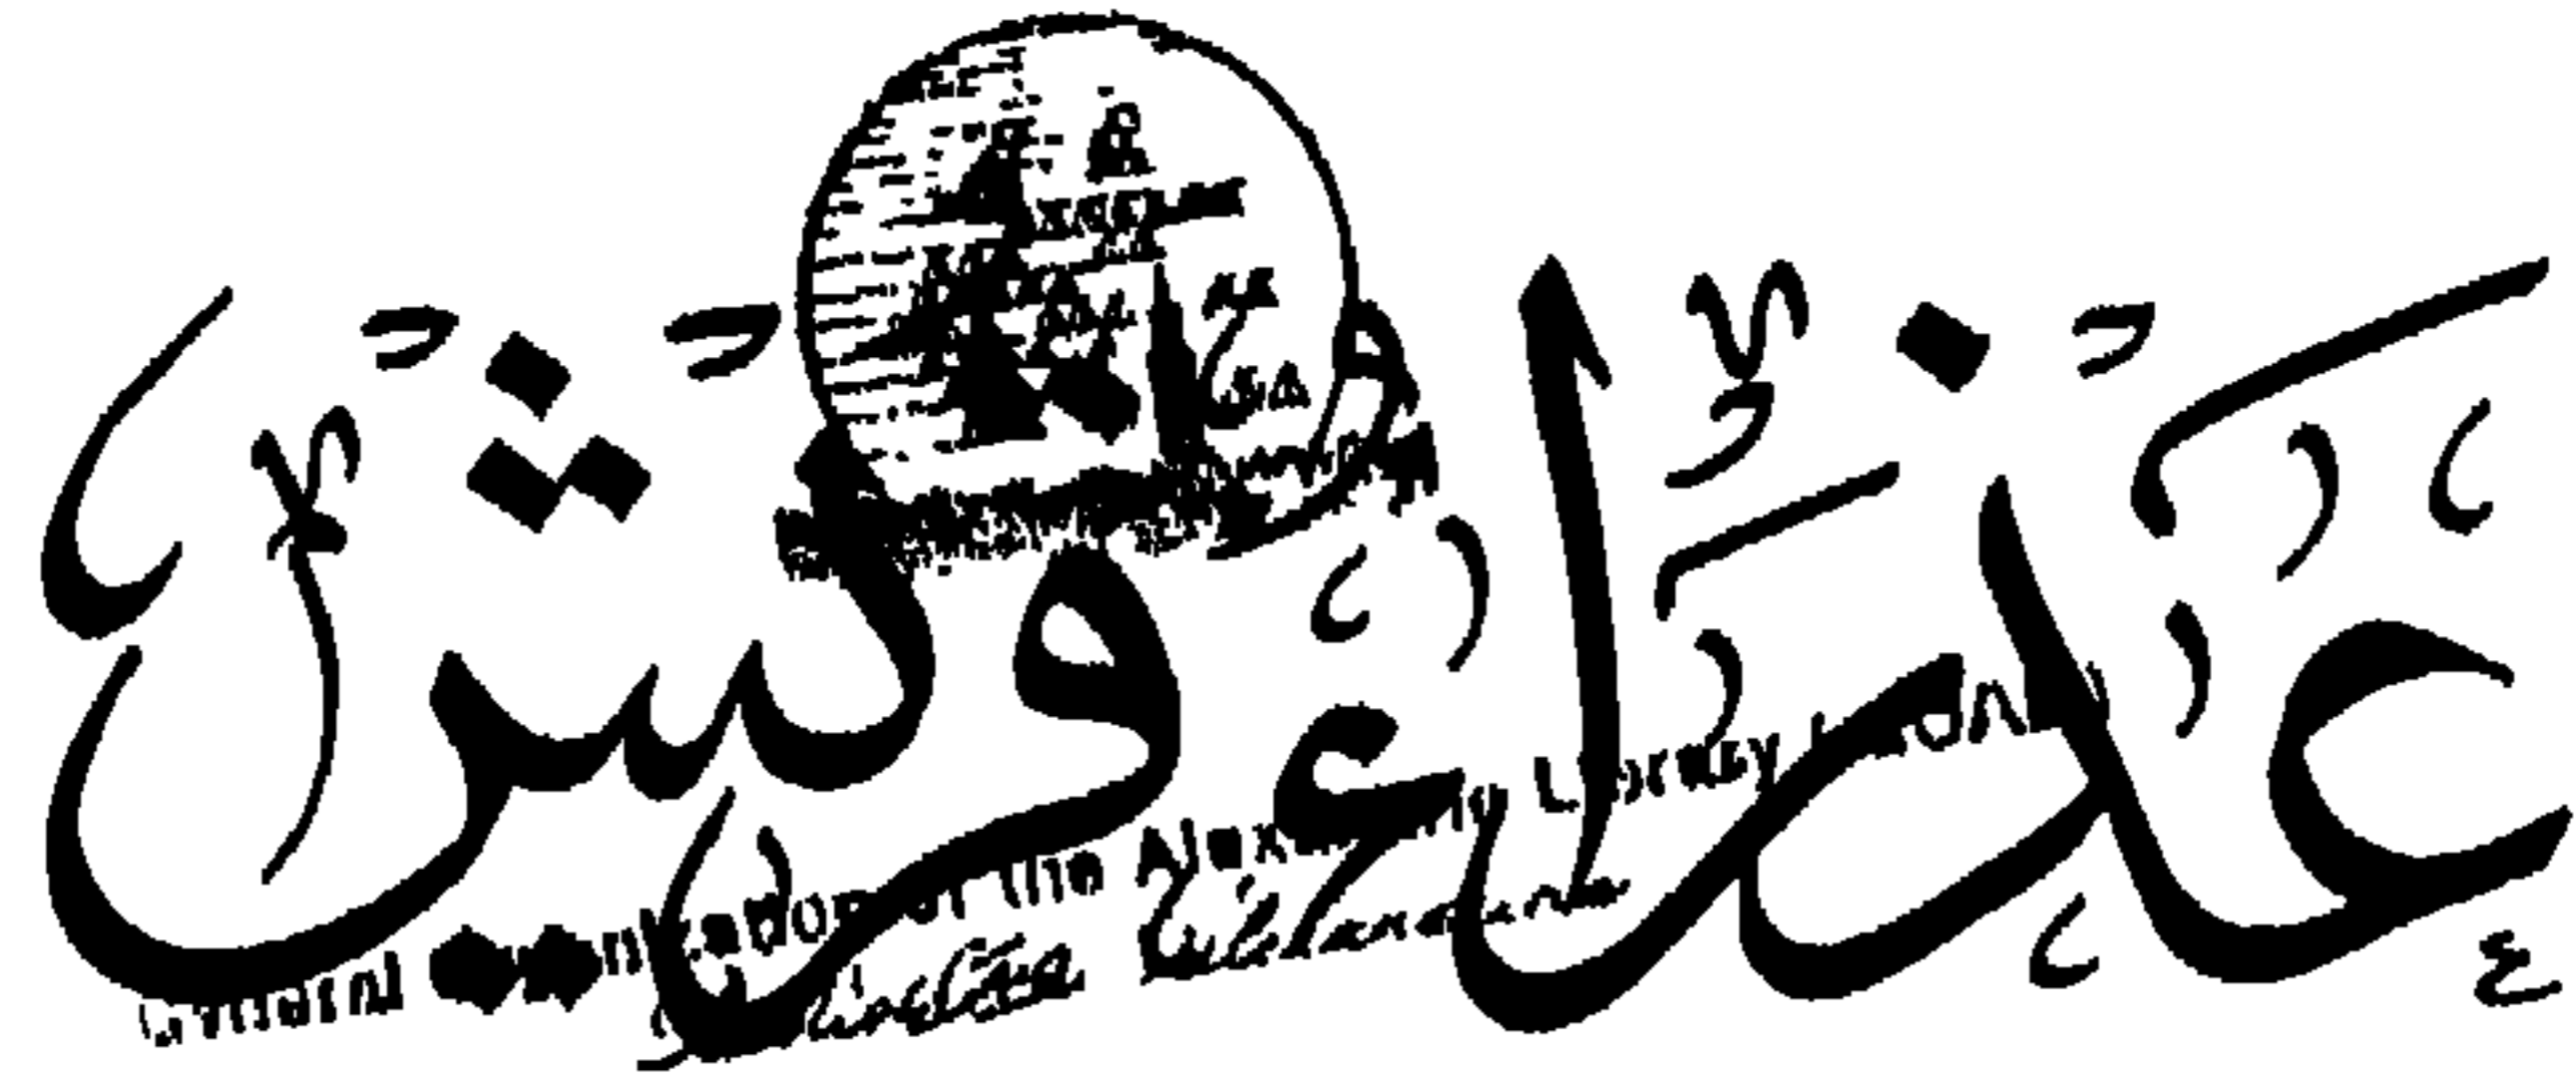 عذراء قريش
General Organization of the Alexandria Library
Bibliotheca Alexandrina